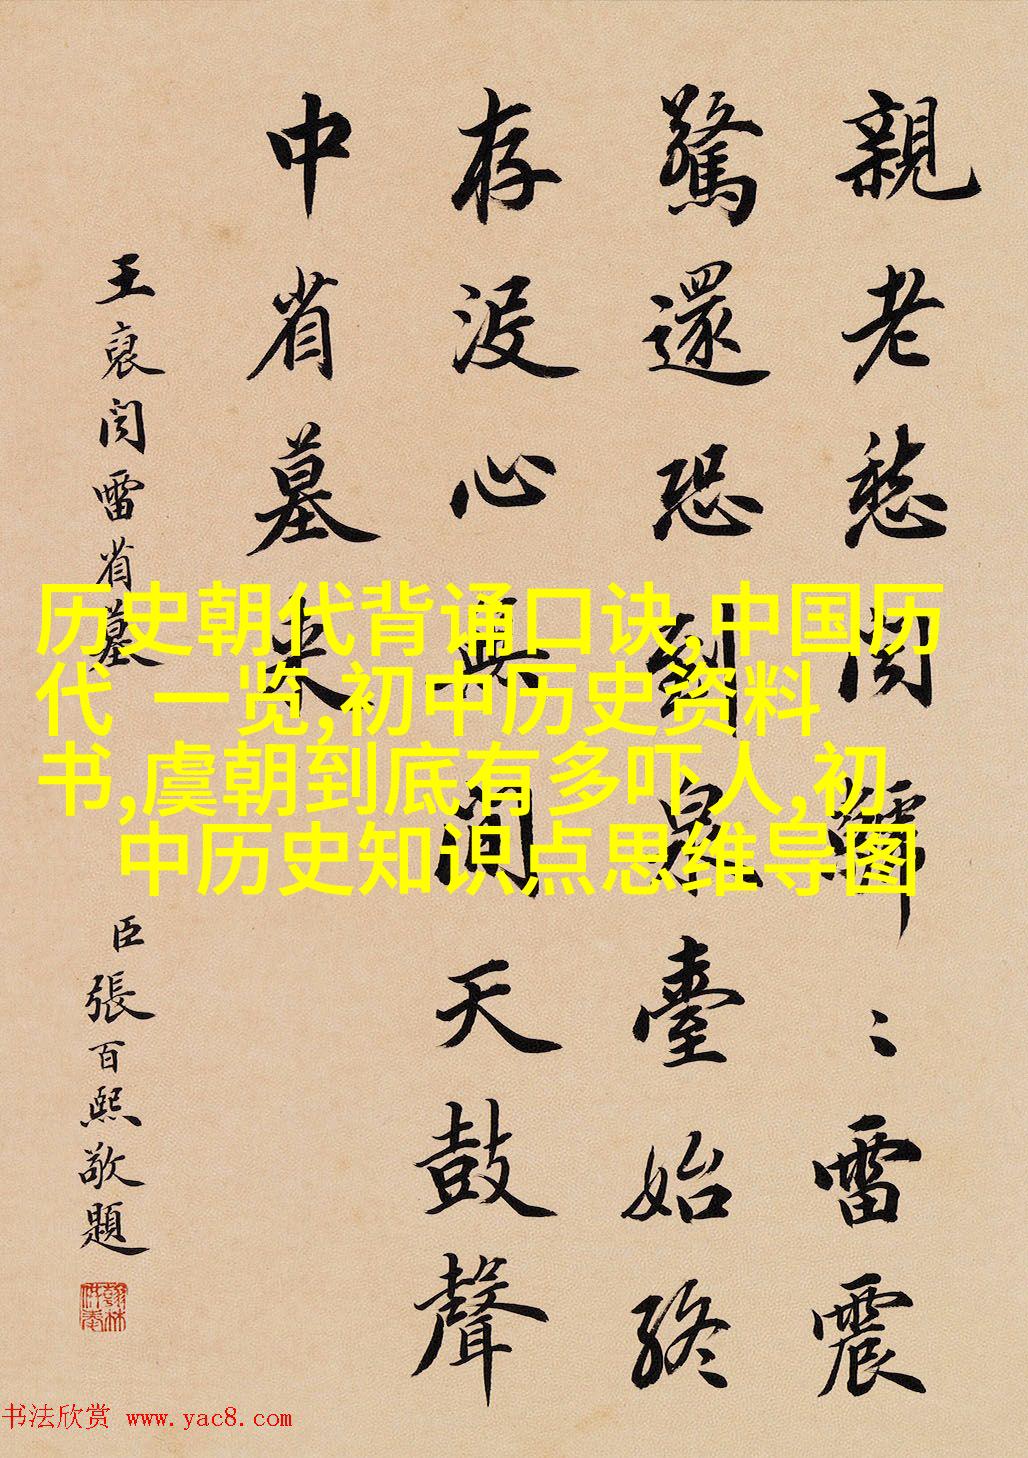 親老愁聞轟〻雷震
驚還恐到泉臺始終
存沒心無間天鼓聲
中省墓來
王裒聞雷省墓
臣張百熙敬題
翰林供奉
历史朝代背诵口诀,中国历
代 一览,初中历史资料
书,虞朝到底有多吓人,初
中历史知识点思维导图
书法欣赏 www.yac8.com